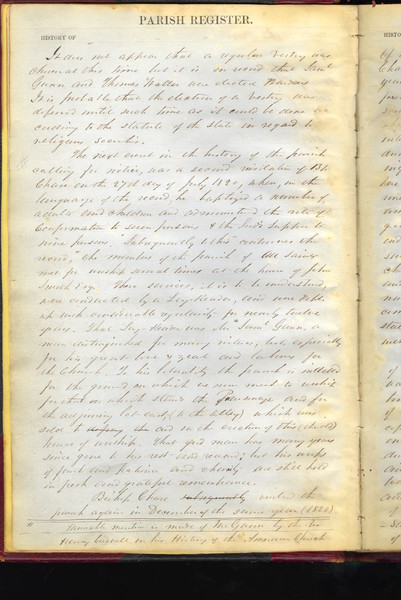 PARISH REGISTER.
HISTORY OF
It does not appear that a regular Vestry was
chosen at this time but it is on record that Saml
Gunn and Thomas Waller were elected Wardens
It is probable that the election of a Vestry was
deferred until such time as it could be done ac
cording to the statute of the state in regard to
religious societies.
The next event in the history of the parish
calling for notice, was a second visitation of Bp.
Chase on the 27th day of July 1820, when, in the
language of the record, he baptized a number of
adults and children and administered the rite of
Confirmation to seven persons & the Lord's Supper to
nine persons. Subsequently to this continues the
record, the members of the parish of All Saints
met for worship several times at the house of John
Smith Esqr. These services, it is to be understood,
were conducted by a Lay-Reader, and were kept
up with considerable regularity for nearly twelve
years. That Lay-Reader was Mr Saml. Gunn, a
man distinguished for many virtues, but especially
for his great love & zeal and labors for
the Church. To his liberality the parish is indebted
for the ground on which we now meet to worship
for that on which stands the Parsonage and for
the adjoining lot east (to the alley) which was
sold to and in the erection of this
house of worship. That good man has many years
since gone to his rest and reward; but his works
of faith and patience and charity are still held
in fresh and grateful remembrance.
Bishop Chase subsequently visited the
parish again in December of the same year (1820)
* Honorable mention is made of Mr Gunn by the Rev
Henry Caswall in his History of the American Church
HISTO